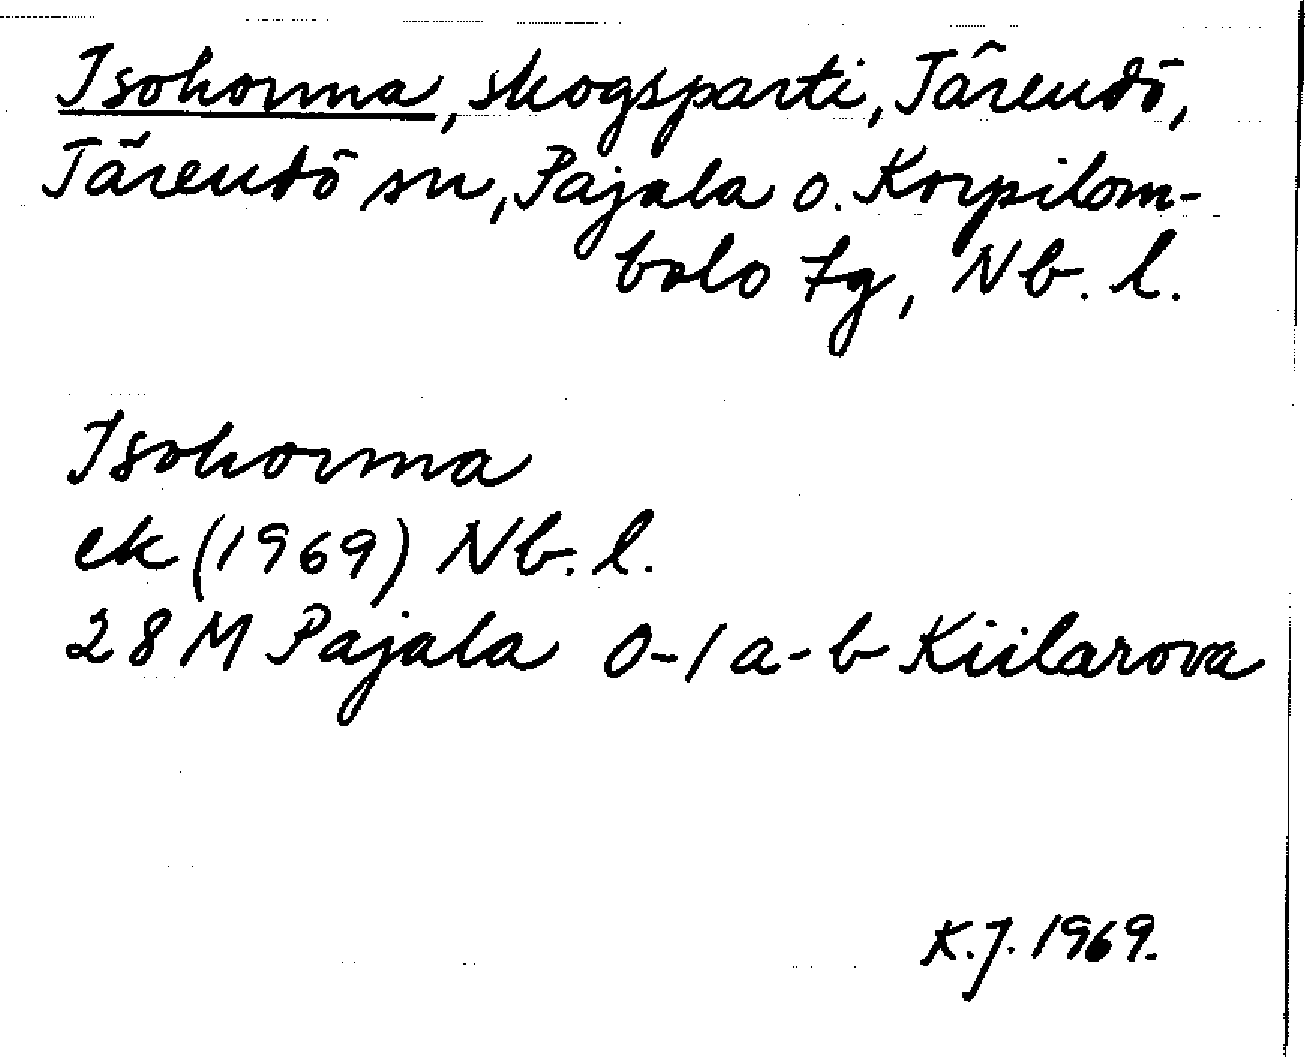 Isohorma, skogsparti, Tärendö,
Tärendö sn, Pajala o. Korpilom-
bolo tg, Nb. l.
Isohorma
ek (1969) Nb. l.
28 M Pajala 0-1 a-b Kiilarova
K.J. 1969.